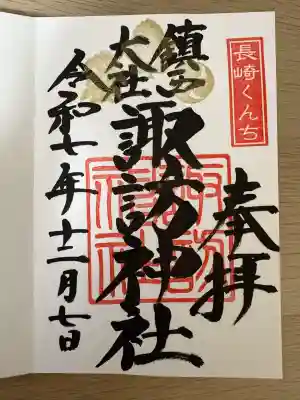 長崎くんち
奉拝
鎮西大社
諏訪神社
令和七年十二月七日